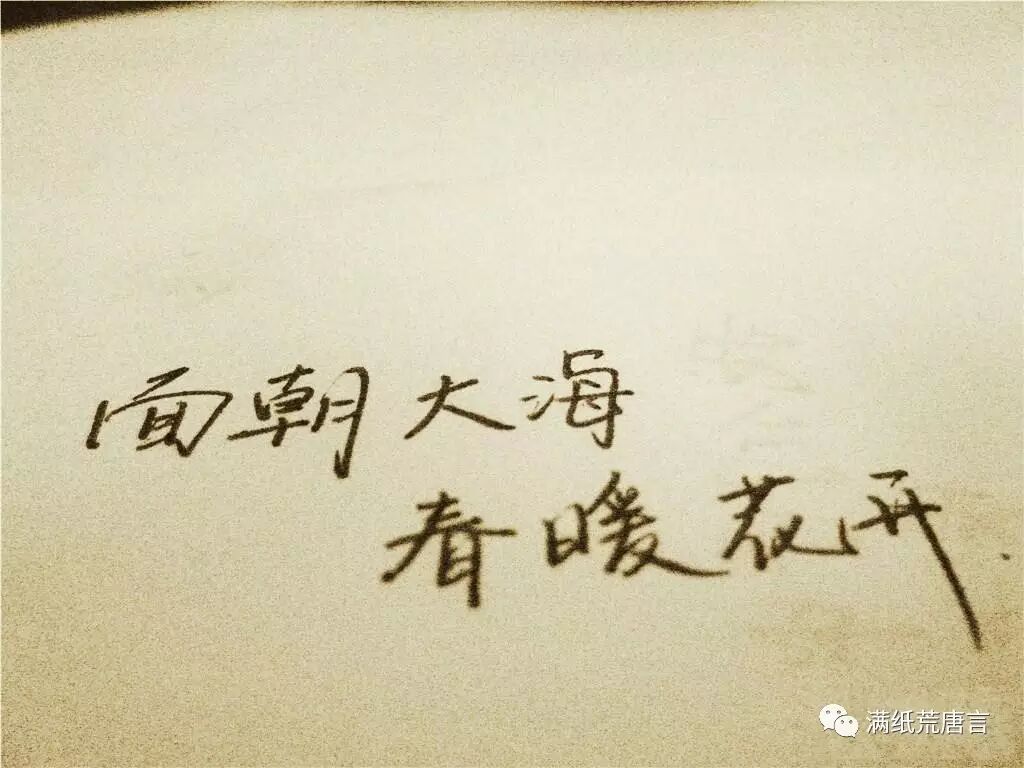 面朝大海
春暖花开.
满纸荒唐言